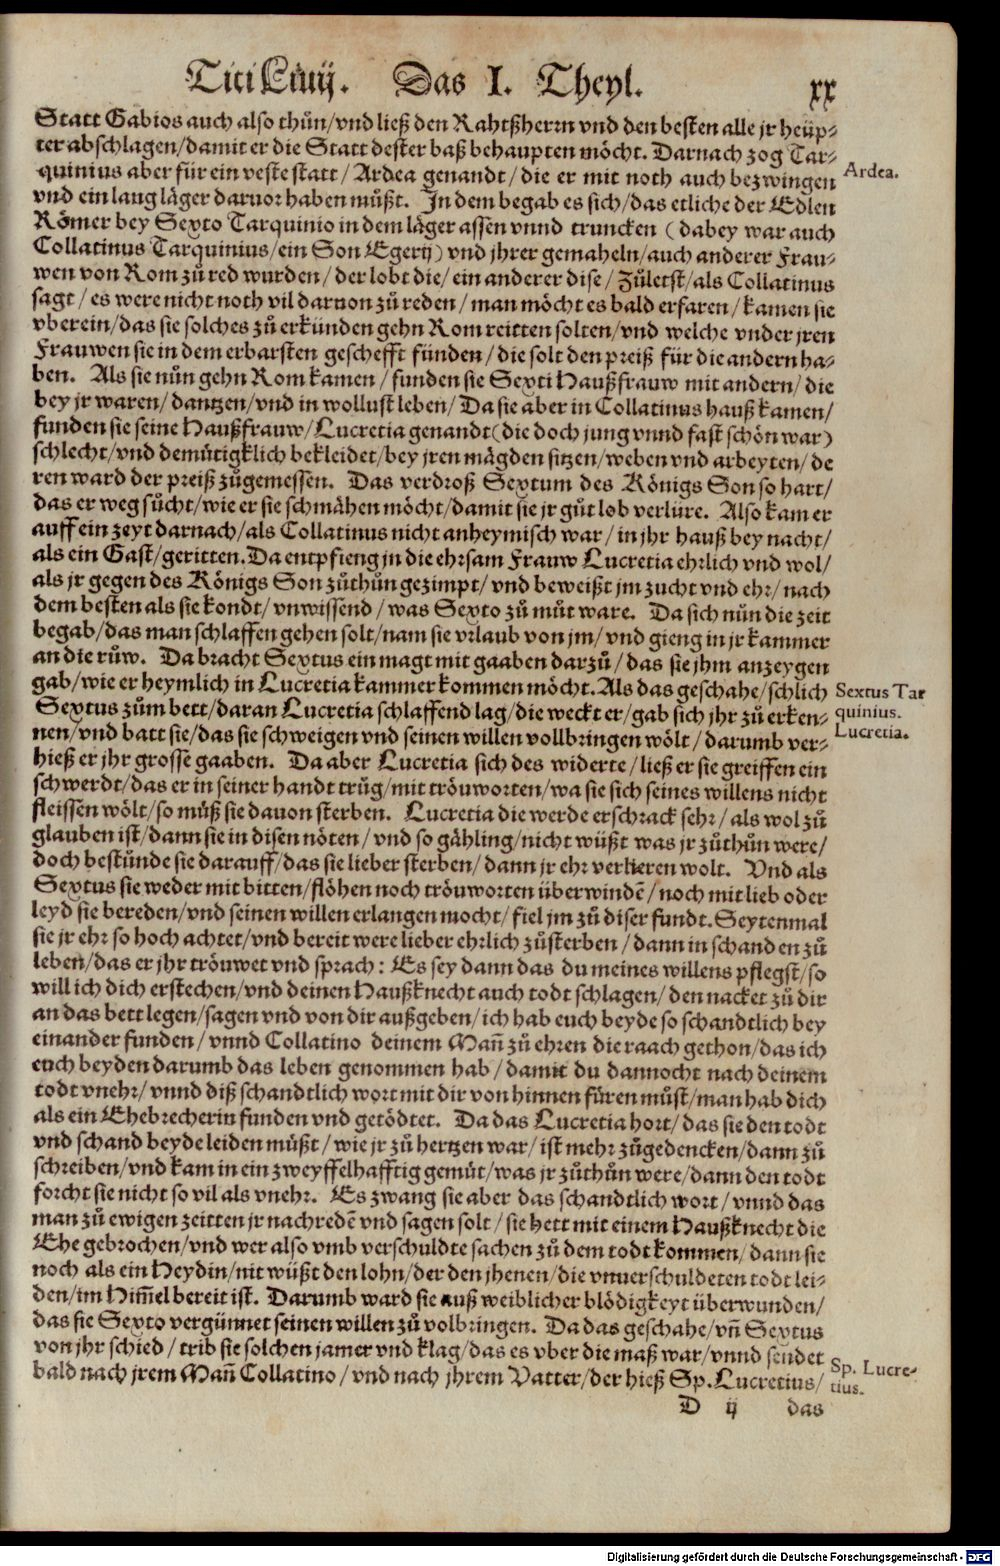 Titi Liuij. Das I. Theyl. xx
Statt Gabios auch also thůn/vnd ließ den Rahtßherrn vnd den besten alle jr heüp-
ter abschlagen/damit er die Statt dester baß behaupten möcht. Darnach zog Tar-
quinius aber für ein veste statt/ Ardea genandt/die er mit noch auch bezwingen
Ardea.
vnd ein lang läger daruor haben müßt. In dem begab es sich/das etliche der Edlen
Römer bey Sexto Tarquinio in dem läger assen vnnd truncken (dabey war auch
Collatinus Tarquinius/ein Son Egerij) vnd jhrer gemaheln/auch anderer Frau-
wen von Rom zů red wurden/der lobt die/ein anderer dise/Zůletst/als Collatinus
sagt/es were nicht noch vil daruon zů reden/man möcht es bald erfaren/kamen sie
vberein/das sie solches zů erkünden gehn Rom reitten solten/vnd welche vnder jren
Frauwen sie in dem erbarsten geschefft fünden/die solt den preiß für die andern ha-
ben. Als sie nůn gehn Rom kamen/funden sie Sexti Haußfrauw mit andern/die
bey jr waren/dantzen/vnd in wollust leben/Da sie aber in Collatinus hauß kamen/
funden sie seine Haußfrauw/Lucretia genandt(die doch jung vnnd fast schön war)
schlecht/vnd demůtigklich bekleidet/bey jren mägden sitzen/weben vnd arbeyten/de
ren ward der preiß zůgemessen. Das verdroß Sextum des Königs Son so hart/
das er weg sůcht/wie er sie schmähen möcht/damit sie jr gůt lob verlüre. Also kam er
auff ein zeyt darnach/als Collatinus nicht anheymisch war/in jhr hauß bey nacht/
als ein Gast/geritten. Da entpfieng jn die ehrsam Frauw Lucretia ehrlich vnd wol/
als jr gegen des Königs Son zůthůn gezimpt/vnd beweißt jm zucht vnd ehr/nach
dem besten als sie kondt/vnwissend/was Sexto zů můt ware. Da sich nůn die zeit
begab/das man schlaffen gehen solt/nam sie vrlaub von jm/vnd gieng in jr kammer
an die růw. Da bracht Sextus ein magt mit gaaben darzů/das sie jhm anzeygen
gab/wie er heymlich in Lucretia kammer kommen möcht. Als das geschahe/schlich
Sextus Tar
quinius.
Lucretia.
Sextus zům bett/daran Lucretia schlaffend lag/die weckt er/gab sich jhr zů erken-
nen/vnd batt sie/das sie schweigen vnd seinen willen vollbringen wölt/darumb ver-
hieß er jhr grosse gaaben. Da aber Lucretia sich des widerte/ließ er sie greiffen ein
schwerdt/das er in seiner handt trůg/mit tröuworten/wa sie sich seines willens nicht
fleissen wölt/so můß sie dauon sterben. Lucretia die werde erschrack sehr/als wol zů
glauben ist/dann sie in disen nöten/vnd so gähling/nicht wüßt was jr zůthůn were/
doch bestünde sie darauff/das sie lieber sterben/dann jr ehr verlieren wolt. Vnd als
Sextus sie weder mit bitten/flöhen noch tröuworten überwindē/noch mit lieb oder
leyd sie bereden/vnd seinen willen erlangen mocht/fiel jm zů diser fundt. Seytenmal
sie jr ehr so hoch achtet/vnd bereit were lieber ehrlich zůsterben/dann in schanden zů
leben/das er jhr tröuwet vnd sprach: Es sey dann das du meines willens pflegst/so
will ich dich erstechen/vnd deinen Haußknecht auch todt schlagen/den nacket zů dir
an das bett legen/sagen vnd von dir außgeben/ich hab euch beyde so schandtlich bey
einander funden/vnnd Collatino deinem Mañ zů ehren die raach gethon/das ich
euch beyden darumb das leben genommen hab/damit du dannocht nach deinem
todt vnehr/vnnd diß schandtlich wort mit dir von hinnen füren můst/man hab dich
als ein Ehebrecherin funden vnd getödtet. Da das Lucretia hort/das sie den todt
vnd schand beyde leiden müßt/wie jr zů hertzen war/ist mehr zůgedencken/dann zů
schreiben/vnd kam in ein zweyffelhafftig gemüt/was jr zůthůn were/dann den todt
forcht sie nicht so vil als vnehr. Es zwang sie aber das schandtlich wort/vnnd das
man zů ewigen zeitten jr nachredē vnd sagen solt/sie hett mit einem Haußknecht die
Ehe gebrochen/vnd wer also vmb verschuldte sachen zů dem todt kommen/dann sie
noch als ein Heydin/nit wüßt den lohn/der den jhenen/die vnuerschuldeten todt lei-
den/im Him̃el bereit ist. Darumb ward sie auß weiblicher blödigkeyt überwunden/
das sie Sexto vergünnet seinen willen zů volbringen. Da das geschahe/vñ Sextus
von jhr schied/trib sie solchen jamer vnd klag/das es vber die maß war/vnnd sendet
bald nach jrem Mañ Collatino/vnd nach jhrem Vatter/der hieß Sp. Lucretius/
Sp. Lucre-
tius.
D ij das
Digitalisierung gefördert durch die Deutsche Forschungsgemeinschaft - DFG